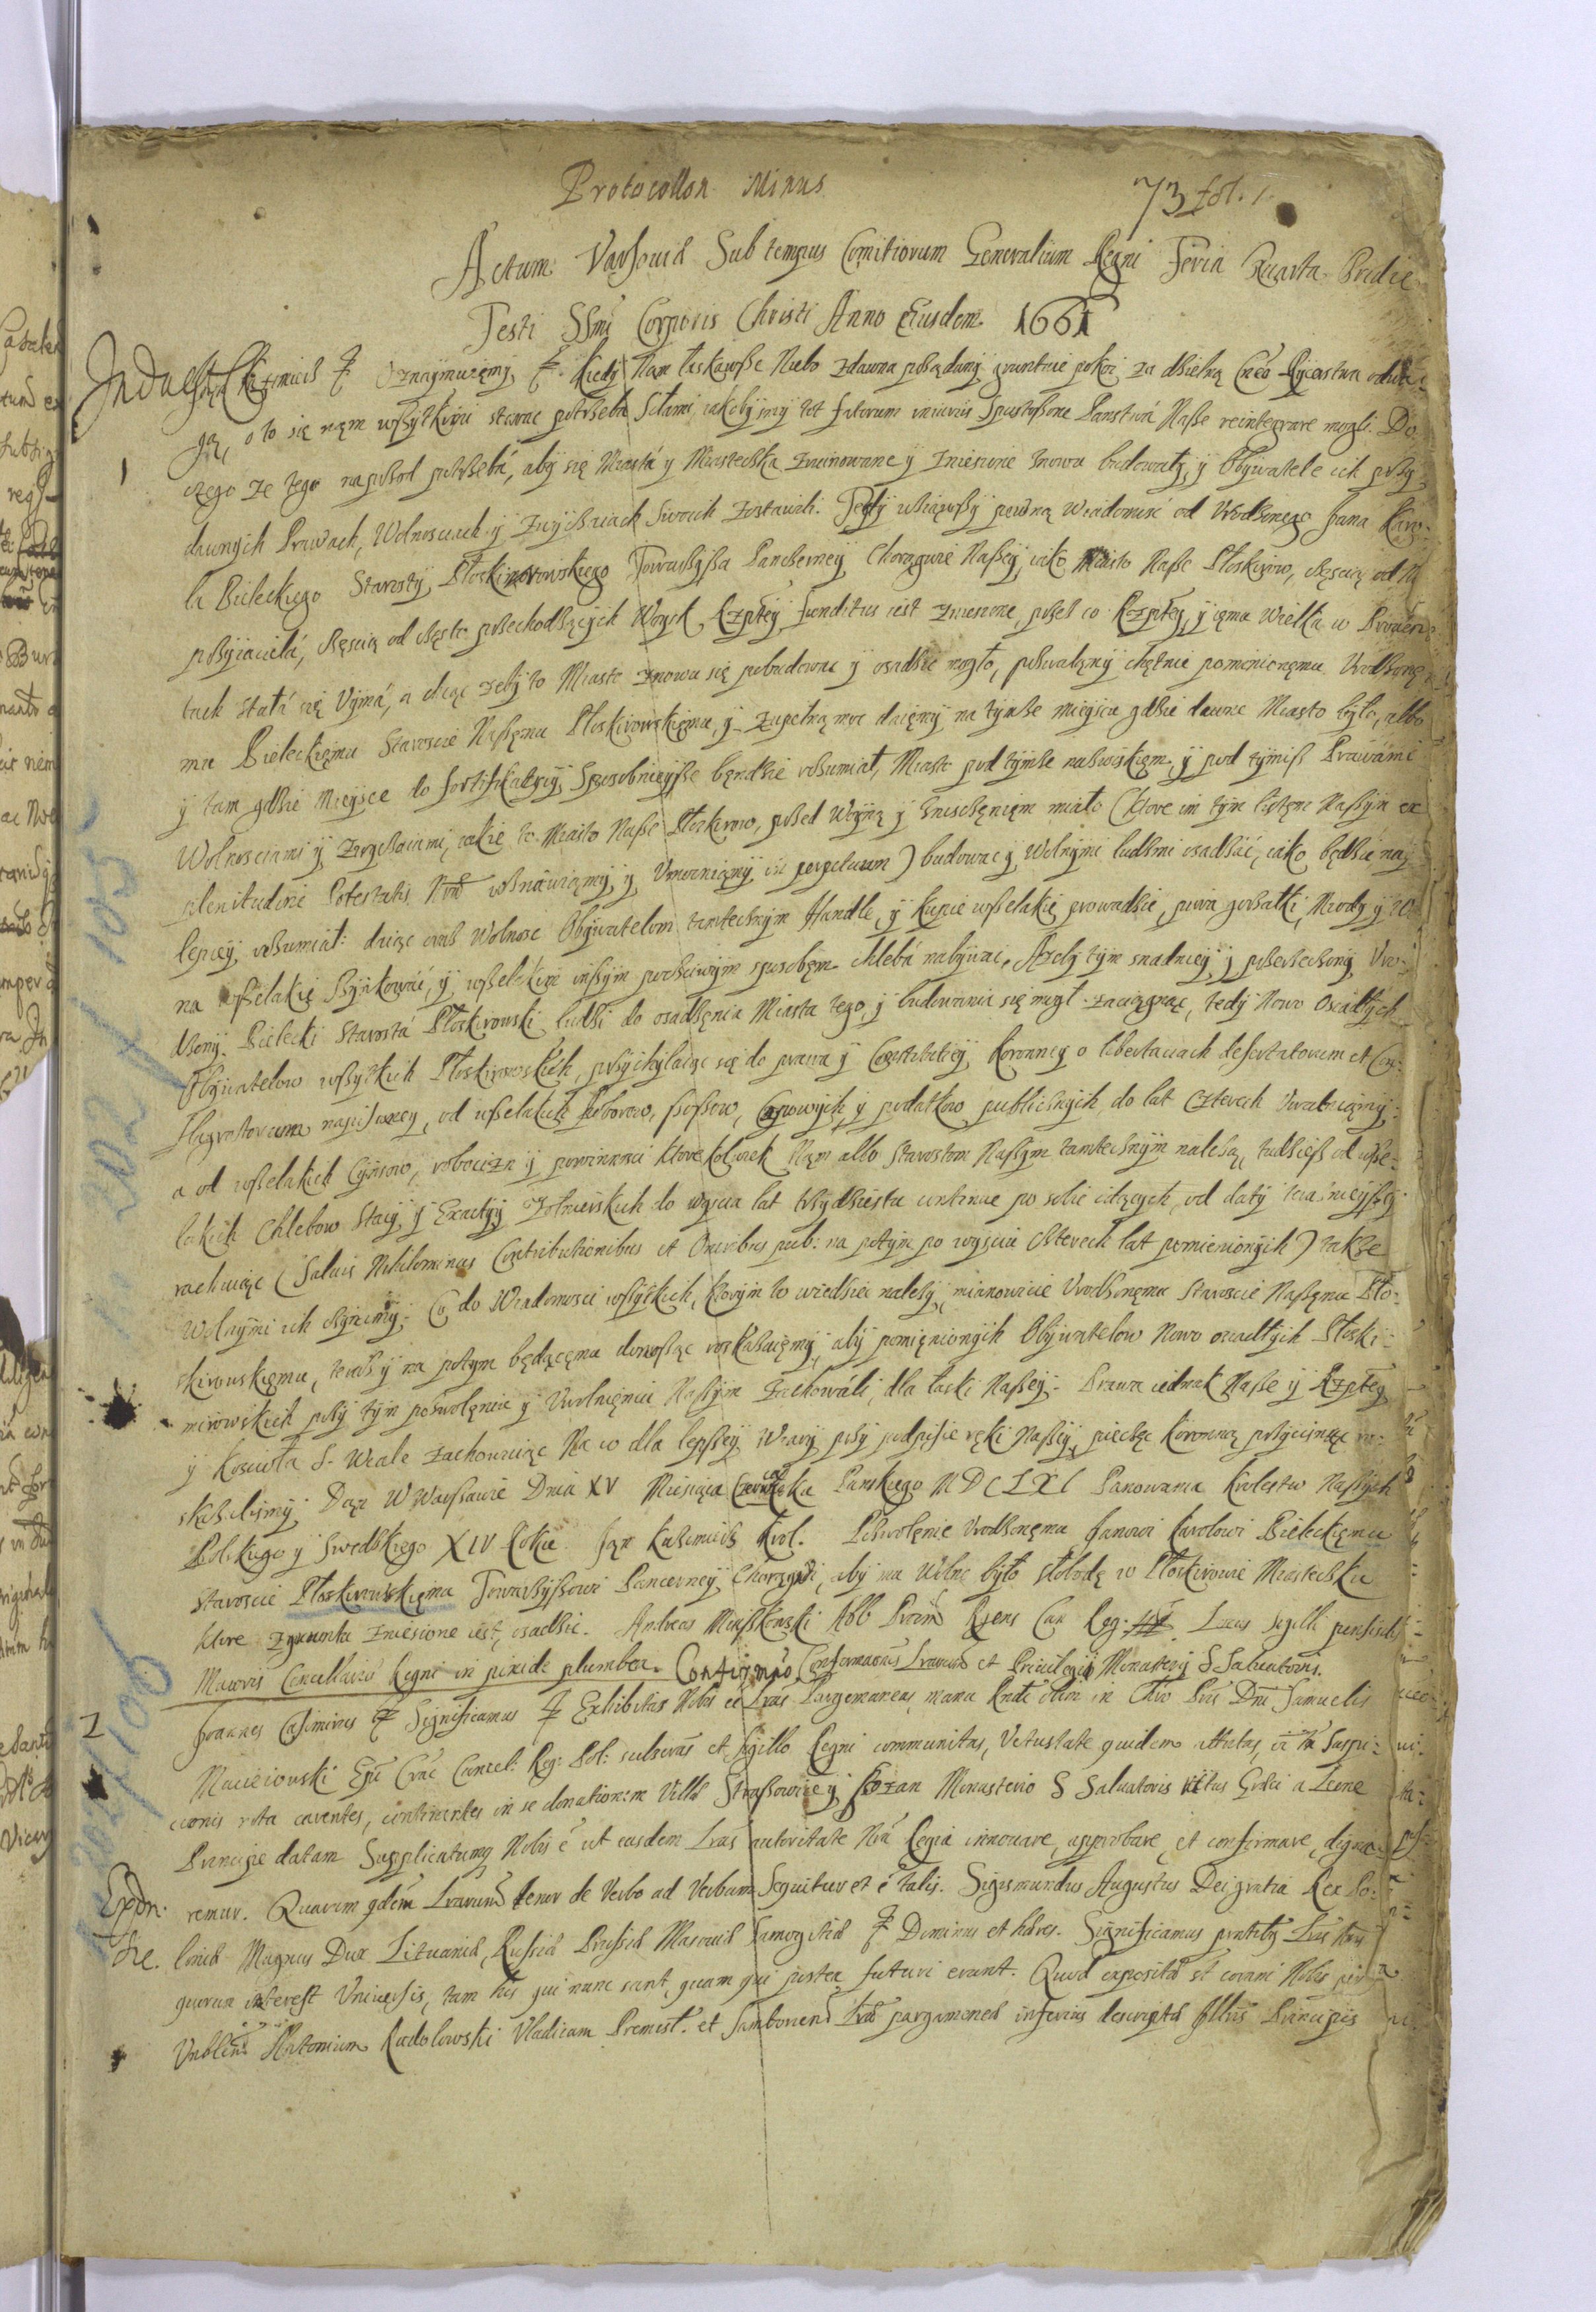 Protocollon Minus
73 fol. 1.
Actum Varsoviæ Sub tempus Comitiorum Generalium Regni Feria Quarta Pridie
Festi SSmi Corporis Christi Anno Eiusdem 1661
Indult Jan Kazimierz Oznaymuiemy Kiedy Nam łaskawsze Niebo zdawna pożądany gruntnie pokoi za dzielną Rycerstwa odwa-
gą, o to się nąm wszytkimi starac potrzeba siłami, iakobysmy tot fatorum iniuriis spustoszone Panstwa Nasze reintegrare mogli. Do
1
czego ze tego naprzod potrzebá, aby się Miastá y Miasteczka zruinowane y zniesione znowu budowały, y Obywatele ich przy
dawnych Prawach, Wolnosciach y Zwyczaiach swoich zostawali. Tedy wziąwszy pewną wiadomosc od Urodzonego Jana Karo-
la Bieleckiego Starosty Płoskirowskiego Towarzysza Pancerney Chorągwie Naszey, iako Miasto Nasze Płoskirow, częscią od Nie-
przyiacielá, częscią od często przechodzących Woysk Rzptey funditus iest zniesione, przez co Rzptey y iąma wielka w Prowen-
tach stałá się Uymá, a chcąc zeby to Miasto znowu się pobudowac y osadzic mogło, pozwalamy chętnie pomienionęmu Urodzonę-
mu Bieleckięmu Staroscie Naszęmu Płoskirowskięmu, y zupełną moc daięmy na tymze mieyscu gdzie dawne Miasto było, albo
y tam gdzie mieysce do fortifikacyey sposobnieysze będzie rozumiał, Miasto pod tymze nazwiskięm, y pod tymisz Prawámi
Wolnosciami y zwyczaiami, iakie to Miasto Nasze Płoskirow, przed Woyną y zniszczęnięm miało (ktore im tym listęm Naszym ex
plenitudine Potestatis Nræ wznáwiąmy y Umocniąmy in perpetuum) budowac y Wolnymi ludzmi osadzać, iako będzie nay-
lepiey rozumiał: daiąc oraz Wolnosc Obywatelom tamtecznym Handle, y kupie wszelakie prowadzic, piwa gorzałki, Miody y Wi-
na wszelakie szynkowác, y wszelakim inszym poczciwym sposobęm chlebá nabywac, Azeby tym snadniey y pomieniony Uro-
dzony Bielecki Starostá Płoskirowski ludzi do osadzęnia Miasta tego, y budowania się mogł zaciągnąc, tedy Nowo Osiadłych
Obywatelow wszytkich Płoskirowskich, przychylaiąc się do prawa y Constitutiey Koronney o libertaciach desertatorum et Con-
flagratorum napisaney, od wszelakich Poborow, szosow, Czopowych y podatkow publicznych do lat czterech Uwalniąmy:
a od wszelakich Czynszow, robocizn y powinnosci ktorekolwiek Nąm albo Starostom Naszym tamtecznym nalezą, tudziesz od wsze-
lakich chlebow Stacyi y Exactyi Zołnierskich do wyscia lat trzydziestu continue po sobie idących, od daty teraznieyszey
rachuiąc (Salvis Nihilominus Contributionibus et Oneribus pub: na potym po wysciu czterech lat pomienionych) takze
Wolnymi ich czynimy. Co do Wiadomosci wszytkich, ktorym to wiedziec nalezy, mianowicie Urodzonęmu Staroscie Naszęmu Pło-
skirowskięmu, teraz y na potym będącęmu donosząc roskazuięmy, aby pomięnionych Obywatelow Nowo osiadłych Płoski-
rowskich przy tym pozwolęniu y Uwolnięniu Naszym zachowáli, dla łaski Naszey. Prawa iednak Nasze y Rzptey
y Koscioła S. Wcale zachowuiąc Na co dla lepszey Wiary przy podpisie ręki Naszey, pieczęc Koronną przycisnąc ro-
skazalismy. Dan W Warszawie Dnia XV Miesiąca Czerwca Roku Panskiego MDCLXI Panowania Krolestw Naszych
Polskiego y Swedzkiego XIV Roku. Jan Kazimierz Krol. Pozwolęnie Urodzonęmu Janowi Karolowi Bieleckięmu
Staroscie Płoskirowskięmu Towarzyszowi Pancerney Chorągwi, aby mu wolno było słobodę w Płoskirowie Miasteczku
ktore zgruntu zniesione iest, osadzic. Andreas Miaszkowski Abb Præm Rgens Can Reg. Locus sigilli pensilis
Maioris Cancellariæ Regni in pixide plumbea. Confirmatio Confirmationis Lrarum et Privilegij Monasterij S Salvatoris.
2
Joannes Casimirus Significamus Exhibitas Nobis eê Lras Pargameneas, manu Rndi olim in Chro Pris Dni Samuelis
Maciciowski Epi Crac Cancel: Reg: Pol: subscras et sigillo Regni communitas, Vetustate quidem attritas, Suspi-
cionis nota carentes, continentes in se donationem Villæ Straszowice y Sozan Monasterio S Salvatoris ritus Græci a Leone
Principe datam Supplicatumq Nobis ê ut easdem Lras autoritate Nra Regia innovare, approbare, et confirmare, digna-
Expdn. remur. Quarum qdem Lrarum tenor de Verbo ad Verbum Sequitur et ê talis. Sigismundus Augustus Dei gratia Rex Po-
loniæ Magnus Dux Lituaniæ, Russiæ Prussiæ Masoviæ Samogitiæ Dominus et hæres. Significamus prntibus Lris Nris
quorum interest Universis, tam his qui nunc sunt, quam qui postea futuri erunt. Quod exposita st coram Nobis per
Vnblem Antonium Radolowski Vladicam Premisl. et Samborien Lræ pargameneæ inferius descriptæ Illris Principis